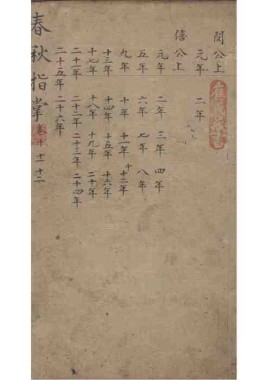 閔公上
元年 二年
僖公上
元年 二年 三年 四年
五年 六年 七年 八年
九年 十年 十一年 十二年
十三年 十四年 十五年 十六年
十七年 十八年 十九年 二十年
二十一年 二十二年 二十三年 二十四年
二十五年 二十六年
春秋指掌 卷十 十一 十二